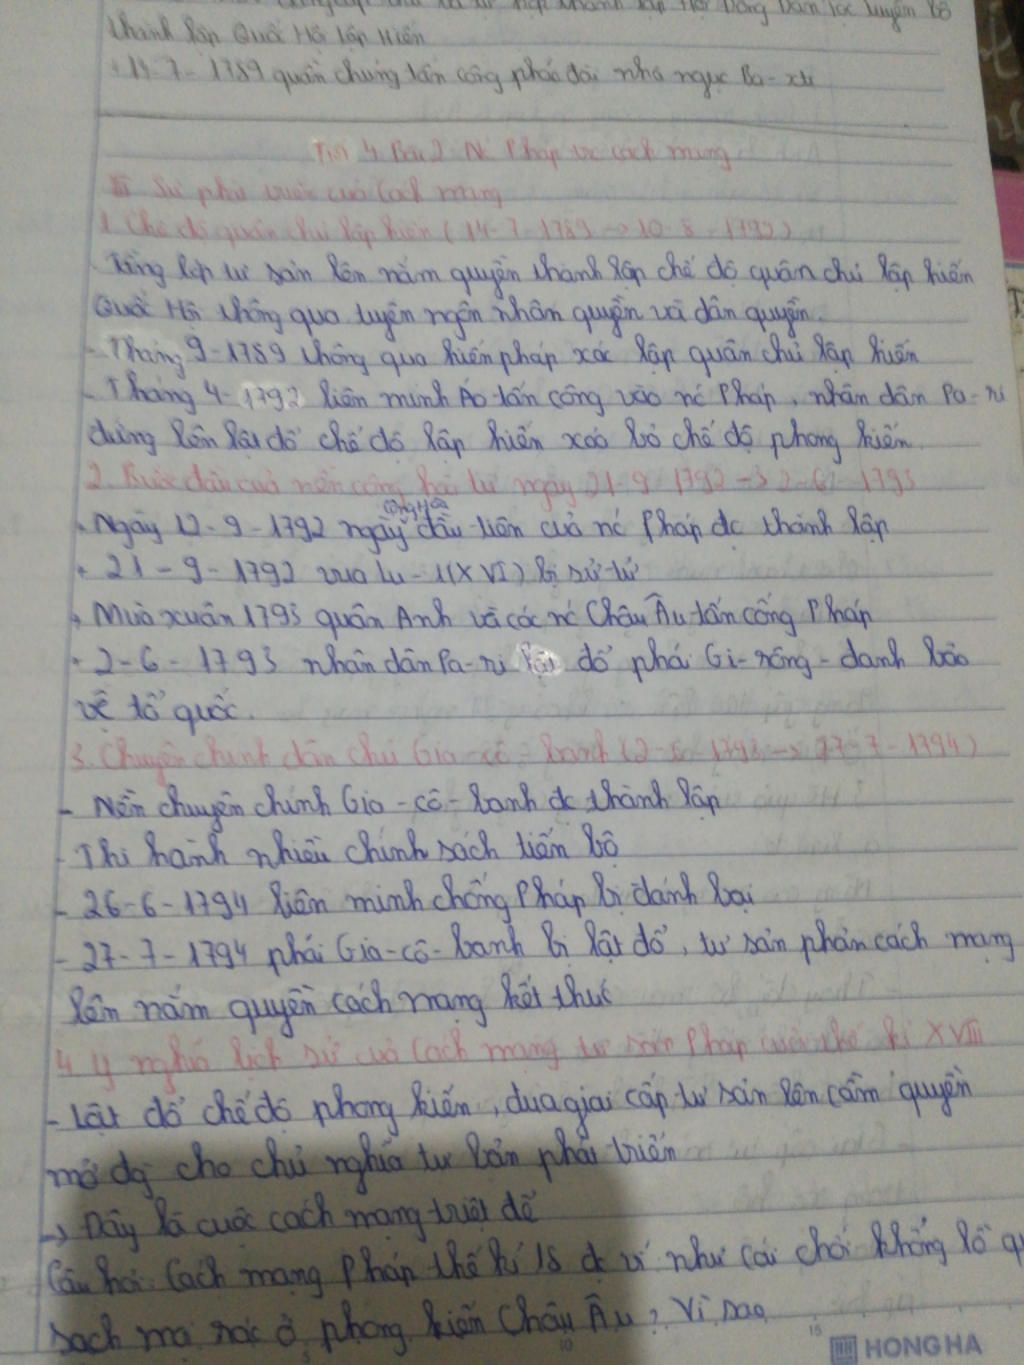 hợp thành lập Hội Đồng Dân tộc tuyên bố
thành lập Quốc Hội lập Hiến
+ 14-7-1789 quần chúng tấn công pháo đài nhà ngục Ba-xti
Tiết 4 Bài 2 Nc Pháp và cách mạng
III Sự phát triển của Cách mạng
1. Chế độ quân chủ lập hiến (14-7-1789 -> 10-8-1792)
Tầng lớp tư sản lên nắm quyền thành lập chế độ quân chủ lập hiến
Quốc Hội thông qua tuyên ngôn nhân quyền và dân quyền.
- Tháng 9-1789 thông qua hiến pháp xác lập quân chủ lập hiến
- Tháng 4-1792 liên minh Áo tấn công vào nc Pháp, nhân dân Pa-ri
đứng lên lật đổ chế độ lập hiến xoá bỏ chế độ phong kiến.
2. Bước đầu của nền cộng hoà từ ngày 21-9-1792 -> 2-6-1793
cộng hoà
+ Ngày 12-9-1792 ngày đầu tiên của nc Pháp đc thành lập
+ 21-9-1792 vua lu-i (XVI) bị xử tử
+ Mùa xuân 1793 quân Anh và các nc Châu Âu tấn công Pháp
+ 2-6-1793 nhân dân Pa-ri lật đổ phái Gi-rông-danh bảo
vệ tổ quốc.
3. Chuyên chính dân chủ Gia-cô-banh (2-6-1793 -> 27-7-1794)
- Nền chuyên chính Gia-cô-banh đc thành lập
- Thi hành nhiều chính sách tiến bộ
- 26-6-1794 liên minh chống Pháp bị đánh bại
- 27-7-1794 phái Gia-cô-banh bị lật đổ, tư sản phản cách mạng
lên nắm quyền cách mạng kết thúc
4 ý nghĩa lịch sử của Cách mạng tư sản Pháp cuối thế kỉ XVIII
- Lật đổ chế độ phong kiến, đưa giai cấp tư sản lên cầm quyền
mở đg cho chủ nghĩa tư bản phát triển
-> Đây là cuộc cách mạng triệt để
Câu hỏi: Cách mạng Pháp thế kỉ 18 đc ví như cái chổi khổng lồ
sạch mọi rác ở phong kiến Châu Âu? Vì sao
HONG HA